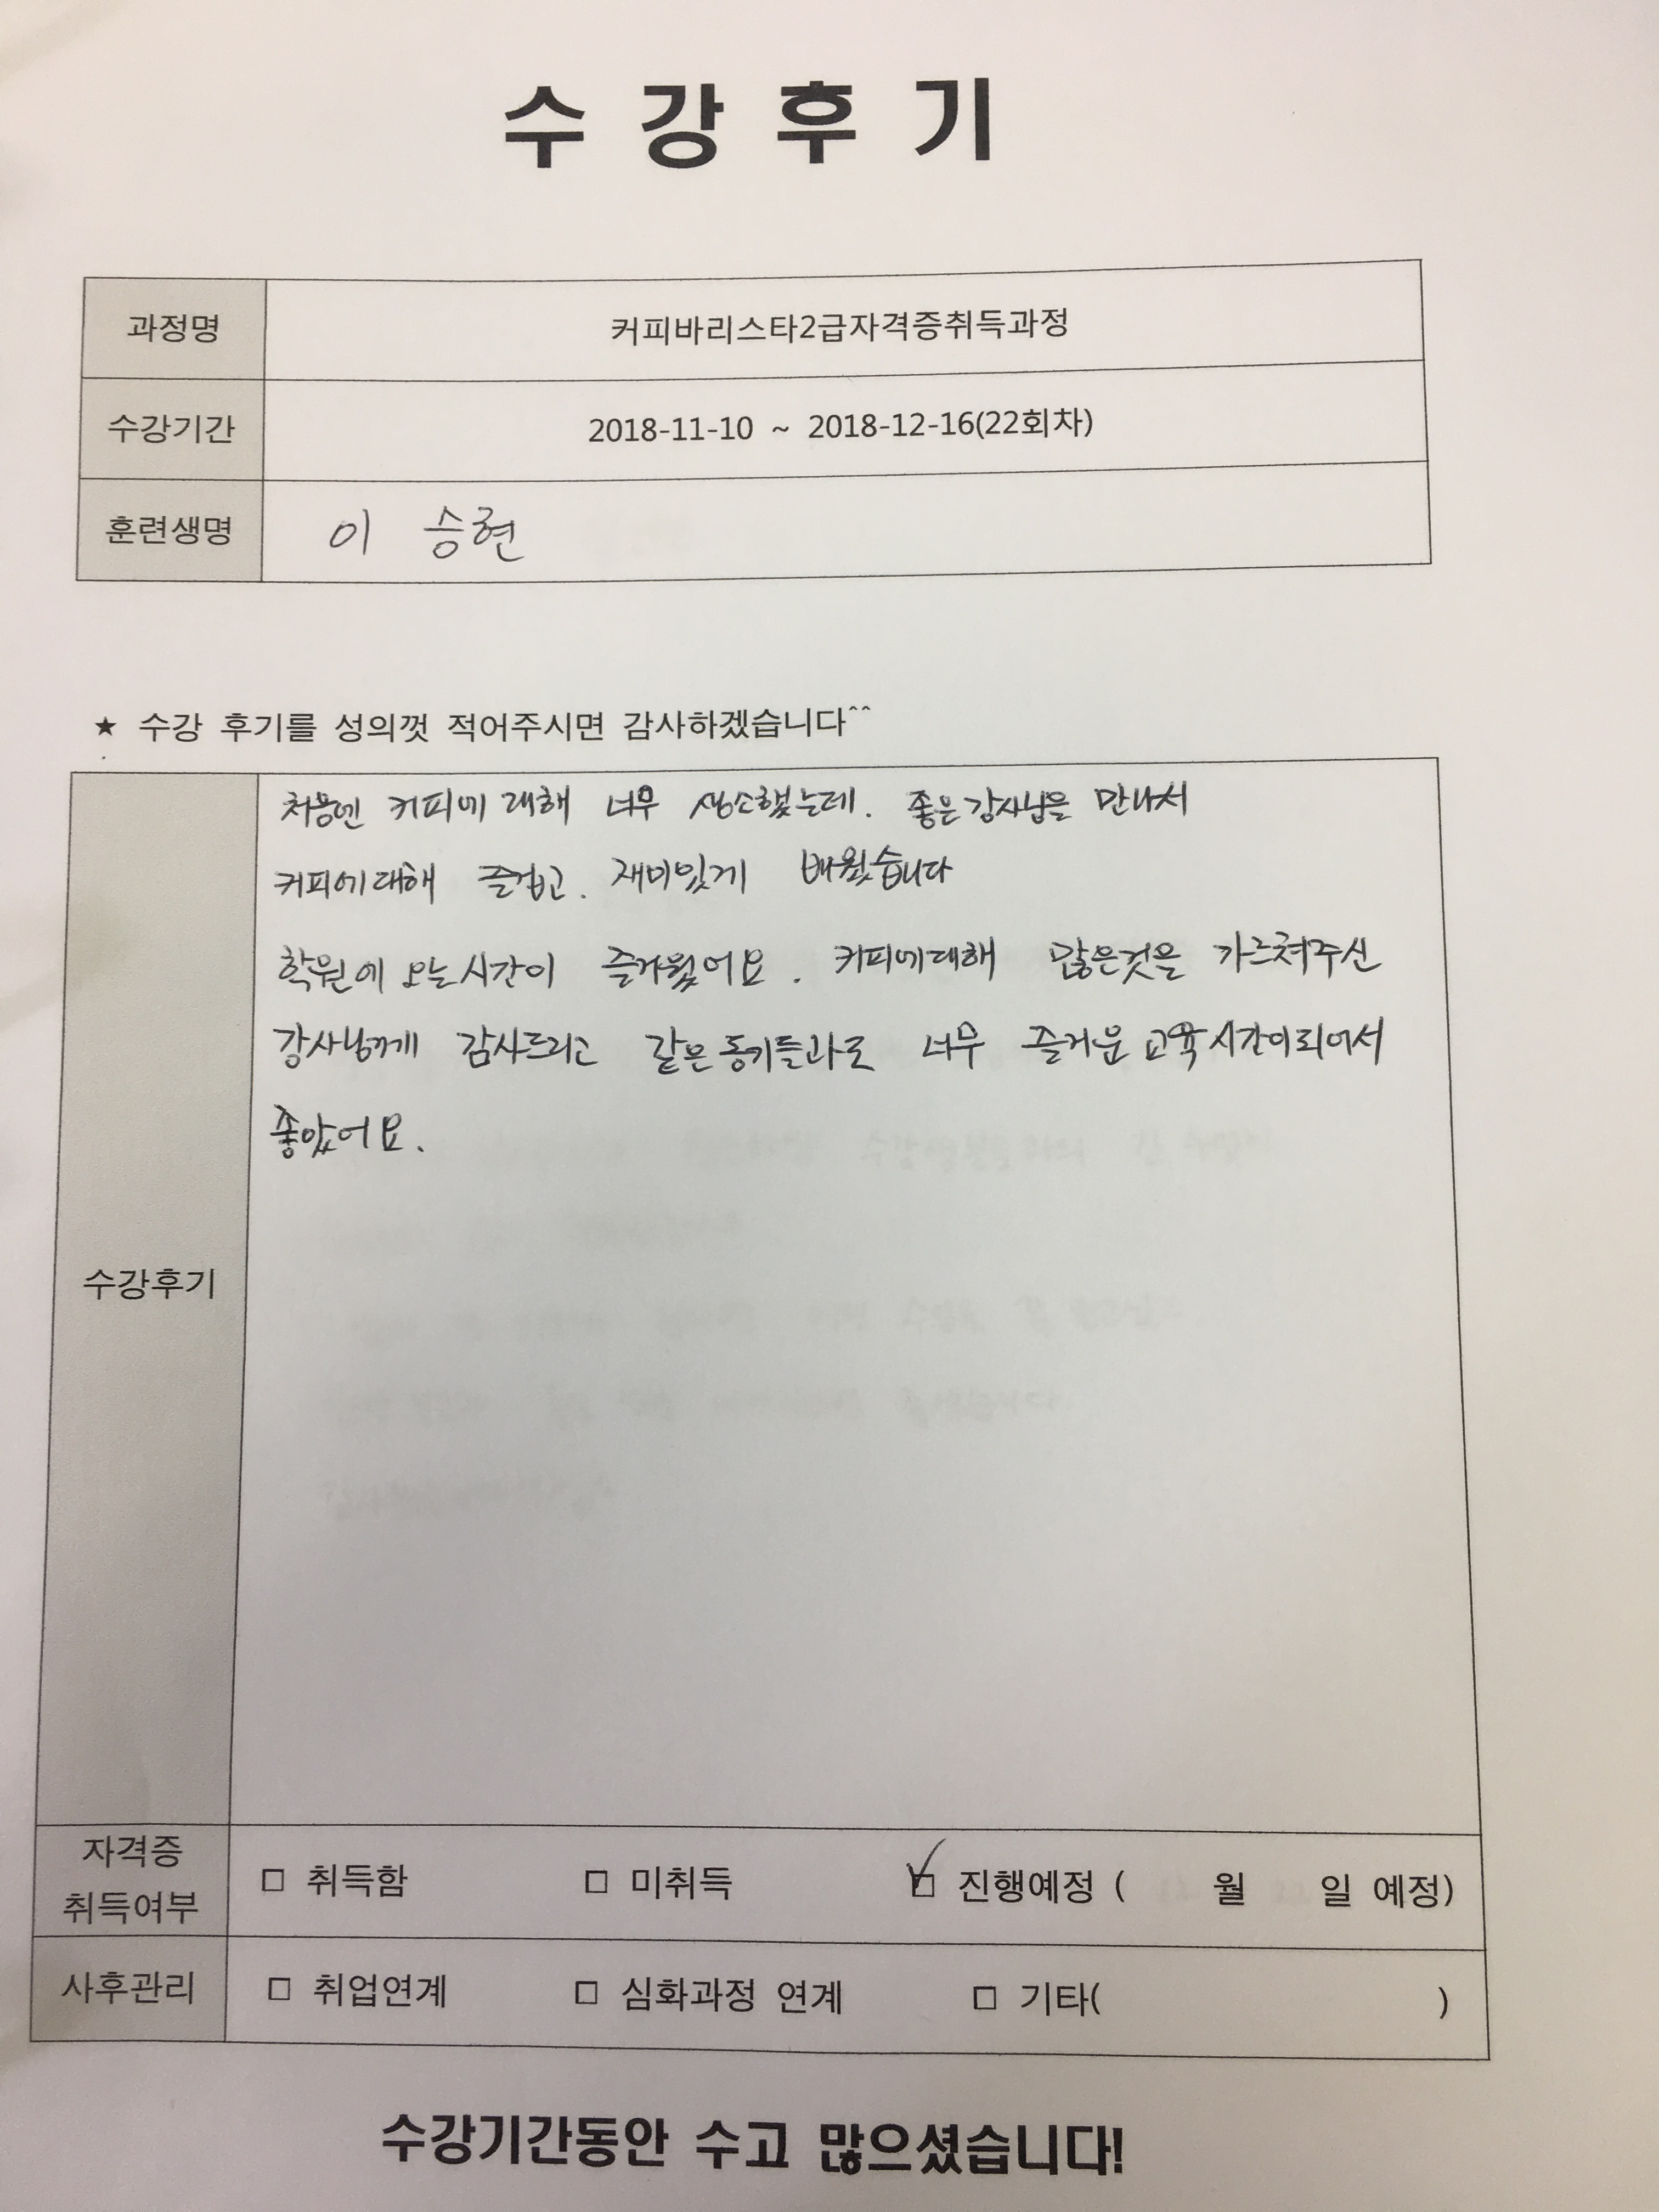 수강후기
과정명 커피바리스타2급자격증취득과정
수강기간 2018-11-10 ~ 2018-12-16(22회차)
훈련생명 이 승현
★ 수강 후기를 성의껏 적어주시면 감사하겠습니다^^
처음엔 커피에 대해 너무 생소했는데. 좋은강사님을 만나서
커피에대해 즐겁고. 재미있게 배웠습니다
학원에 오는시간이 즐거웠어요. 커피에대해 많은것을 가르쳐주신
강사님께 감사드리고 같은동기들과도 너무 즐거운 교육시간이되어서
좋았어요.
수강후기
자격증
취득여부
□ 취득함 □ 미취득 ☑ 진행예정 ( 월 일 예정)
사후관리 □ 취업연계 □ 심화과정 연계 □ 기타( )
수강기간동안 수고 많으셨습니다!